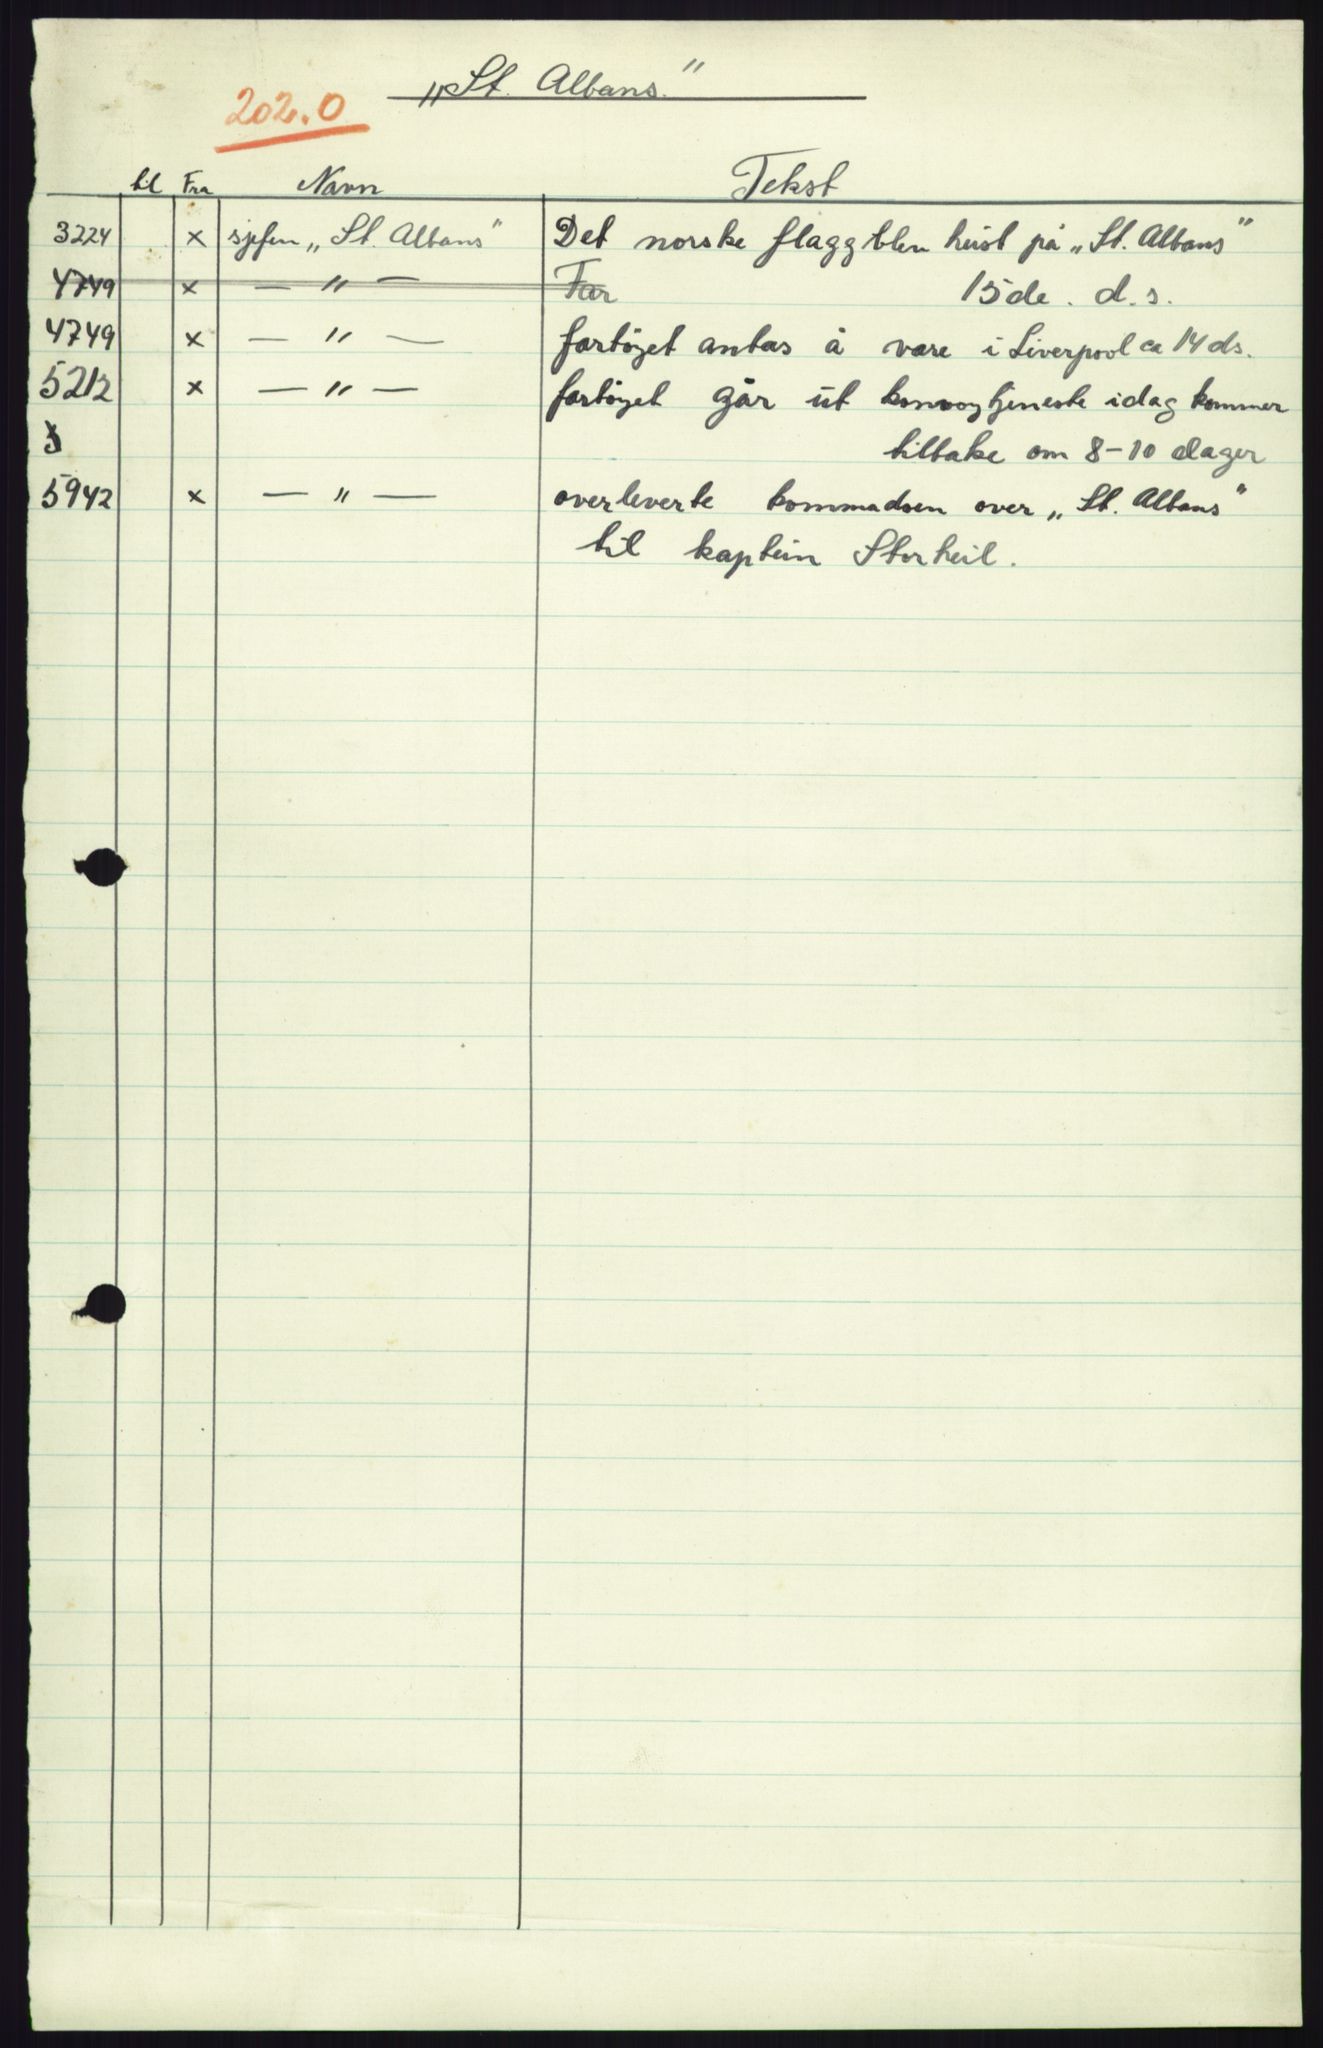 „St. Albans."
202.0
til Fra Navn Tekst
3224 x sjefen „St. Albans" Det norske flagg blen heist på „St. Albans"
4749 x — " — Far 15de. d.s.
4749 x — " — fartöyet antas å være i Liverpool ca 14 ds.
5212 x — " — fartöyet går ut konvoytjeneste idag kommer
tilbake om 8-10 dager
5942 x — " — overleverte kommadoen over „St. Albans"
til kaptein Storheil.